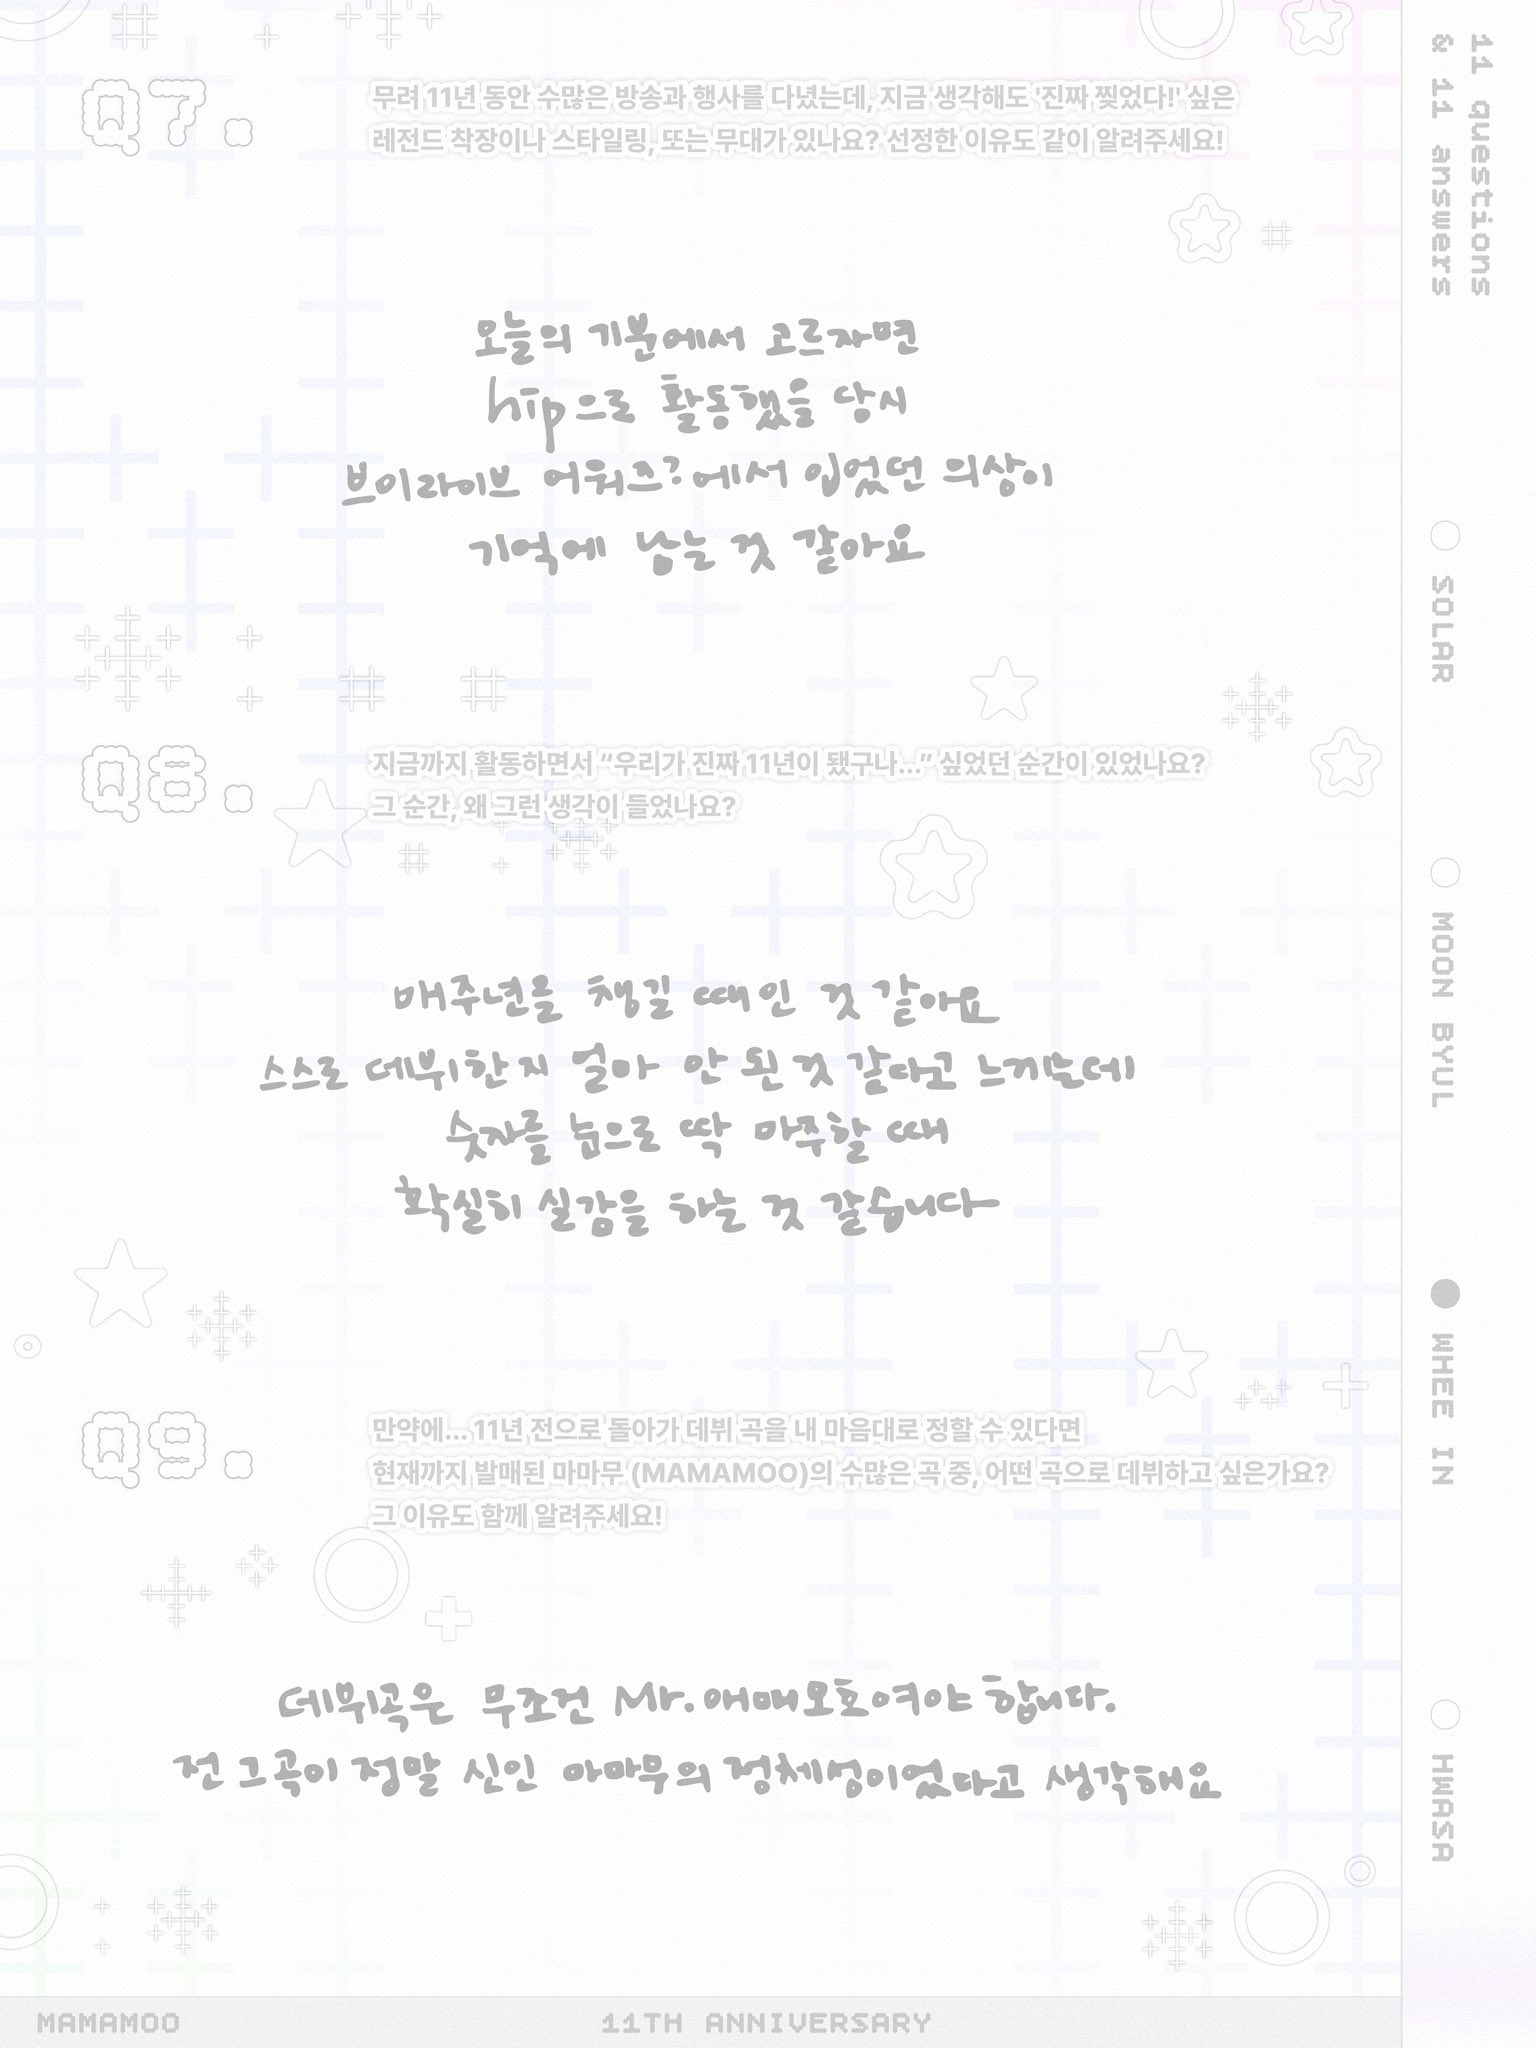 11 questions
& 11 answers
Q7.
무려 11년 동안 수많은 방송과 행사를 다녔는데, 지금 생각해도 '진짜 찢었다!' 싶은
레전드 착장이나 스타일링, 또는 무대가 있나요? 선정한 이유도 같이 알려주세요!
오늘의 기분에서 고르자면
hip으로 활동했을 당시
브이라이브 어워즈?에서 입었던 의상이
기억에 남는 것 같아요
Q8.
지금까지 활동하면서 “우리가 진짜 11년이 됐구나...” 싶었던 순간이 있었나요?
그 순간, 왜 그런 생각이 들었나요?
매주년을 챙길 때인 것 같아요
스스로 데뷔한지 얼마 안 된 것 같다고 느끼는데
숫자를 눈으로 딱 마주할 때
확실히 실감을 하는 것 같습니다
Q9.
만약에... 11년 전으로 돌아가 데뷔 곡을 내 마음대로 정할 수 있다면
현재까지 발매된 마마무 (MAMAMOO)의 수많은 곡 중, 어떤 곡으로 데뷔하고 싶은가요?
그 이유도 함께 알려주세요!
데뷔곡은 무조건 Mr.애매모호여야 합니다.
전 그곡이 정말 신인 마마무의 정체성이었다고 생각해요
SOLAR
MOON BYUL
WHEE IN
HWASA
MAMAMOO
11TH ANNIVERSARY